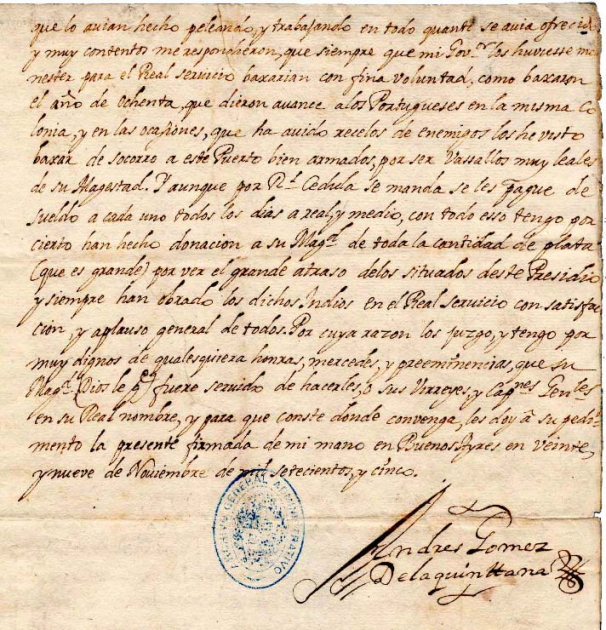 que lo avian hecho peleando, y trabajando en todo quanto se avia ofrecido
y muy contentos me respondieron, que siempre que mi Gov.or los huvuesse me
nester para el Real servicio baxarian con fina voluntad, como baxaron
el año de Ochenta, que dieron avance a los Portugueses en la misma Co
lonia, y en las ocasiones, que ha avido recelos de enemigos los he visto
baxar de socorro a este Puerto bien armados, por ser Vassallos muy leales
de su Magestad. Y aunque por R.l Cedula se manda se les pague de
sueldo a cada uno todos los dias a real, y medio, con todo esso tengo por
cierto han hecho donacion a su Mag.d de toda la cantidad de plata
(que es grande) por ver el grande atraso de los situados deste Presidio
y siempre han obrado los dichos Indios en el Real servicio con satisfac
cion, y aplauso general de todos. Por cuya razon los juzgo, y tengo por
muy dignos de qualesquiera honras, mercedes, y preeminencias, que su
Mag.d (Dios le g.e) fuere servido de hacerles, o sus Virreyes, y Cap.nes Gen.les
en su Real nombre, y para que conste donde convenga, les doy a su pedi
mento la presente firmada de mi mano en Buenos Ayres en veinte,
y nueve de Noviembre de mil setecientos, y cinco.
ARCHIVO GENERAL ADMINISTRATIVO
Andres Gomez
Delaquinttana